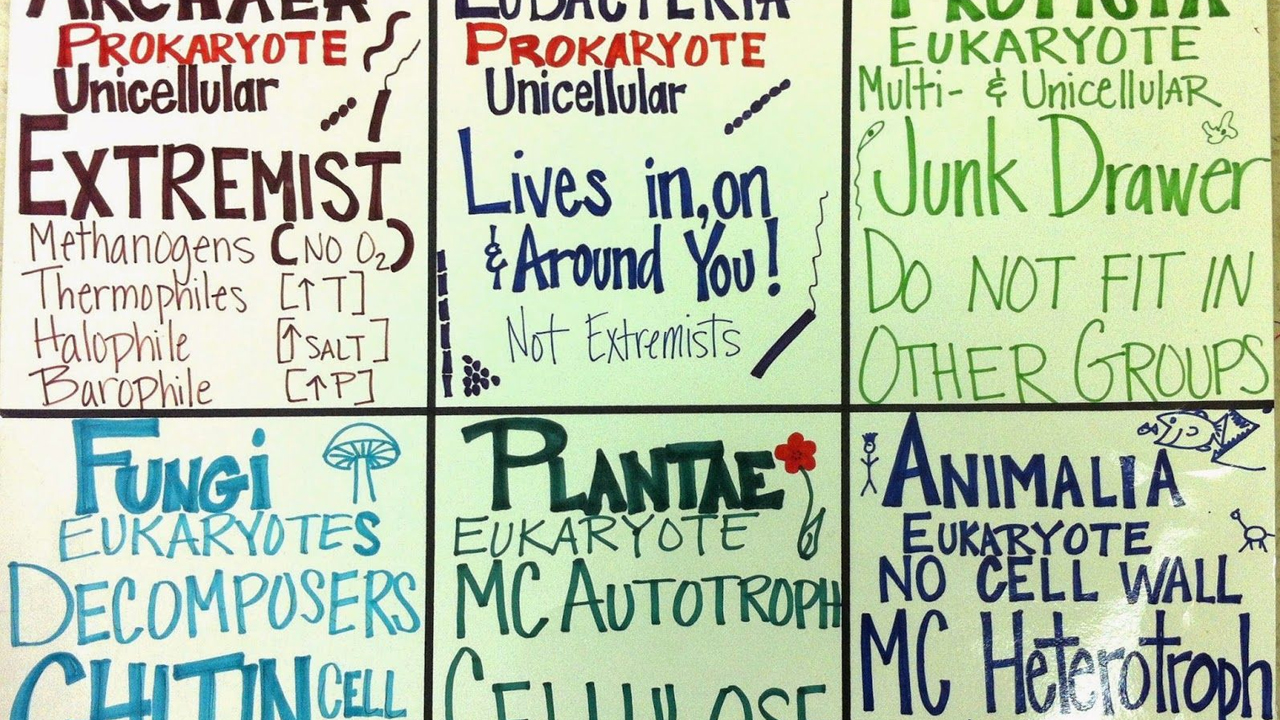 ARCHAEA
PROKARYOTE
Unicellular
EXTREMIST
Methanogens (NO O₂)
Thermophiles [↑T]
Halophile [↑SALT]
Barophile [↑P]
EUBACTERIA
PROKARYOTE
Unicellular
Lives in, on
& Around You!
Not Extremists
PROTISTA
EUKARYOTE
Multi- & UnicellulAR
Junk Drawer
DO NOT FIT IN
OTHER GROUPS
FUNGi
EUKARYOTES
DECOMPOSERS
CHITIN CELL
PLANTAE
EUKARYOTE
MC AUTOTROPH
CELLULOSE
ANIMALIA
EUKARYOTE
NO CELL WALL
MC Heterotroph